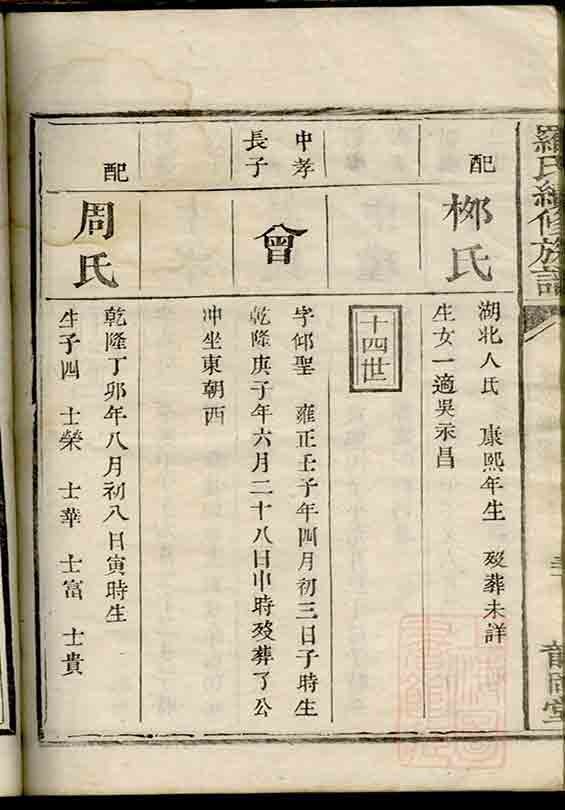 羅氏續修族譜
配
柳氏
湖北人氏 康熙年生 歿葬未詳
生女一適吳示昌
十四世
中孝
長子
會
字仰聖 雍正壬子年四月初三日子時生
乾隆庚子年六月二十八日申時歿葬了公
冲坐東朝西
配
周氏
乾隆丁卯年八月初八日寅時生
生子四 士榮 士華 士富 士貴